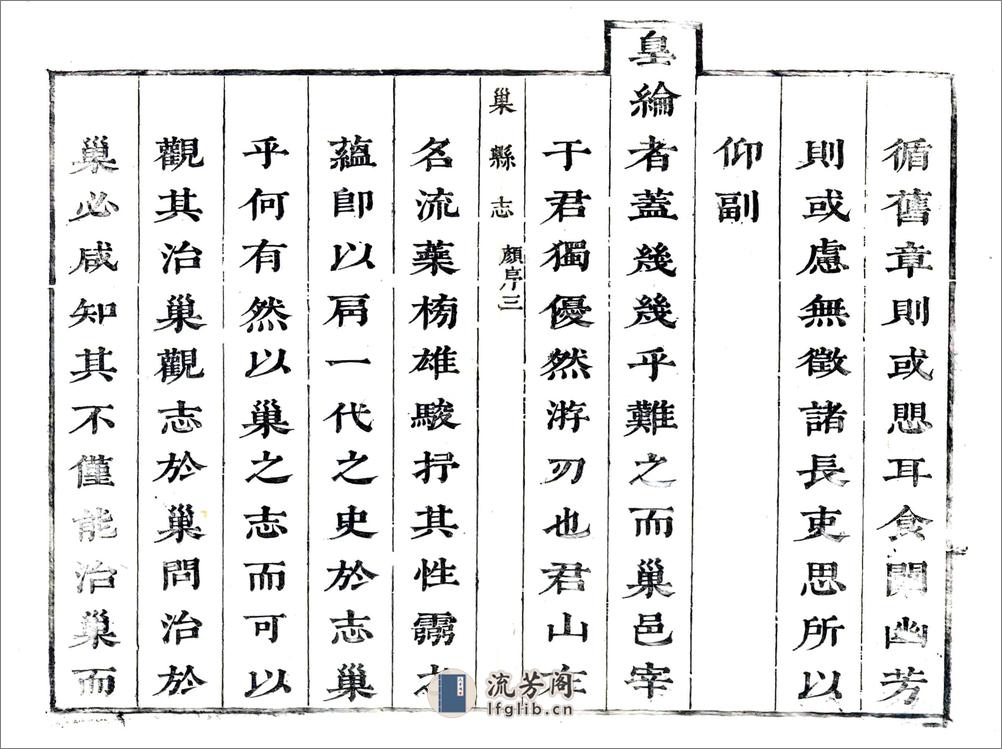 循舊章則或耳食幽芳
則或慮無徵諸長吏思所以
仰副
皇綸者蓋幾幾乎難之而巢邑宰
于君獨優然游刃也君山左
巢縣志 顏序三
名流藥榜雄駿抒其性靈
蘊即以肩一代之史於志巢
乎何有然以巢之志而可以
觀其治巢觀志於巢問治於
巢必咸知其不僅能治巢而
流芳阁
lfglib.cn